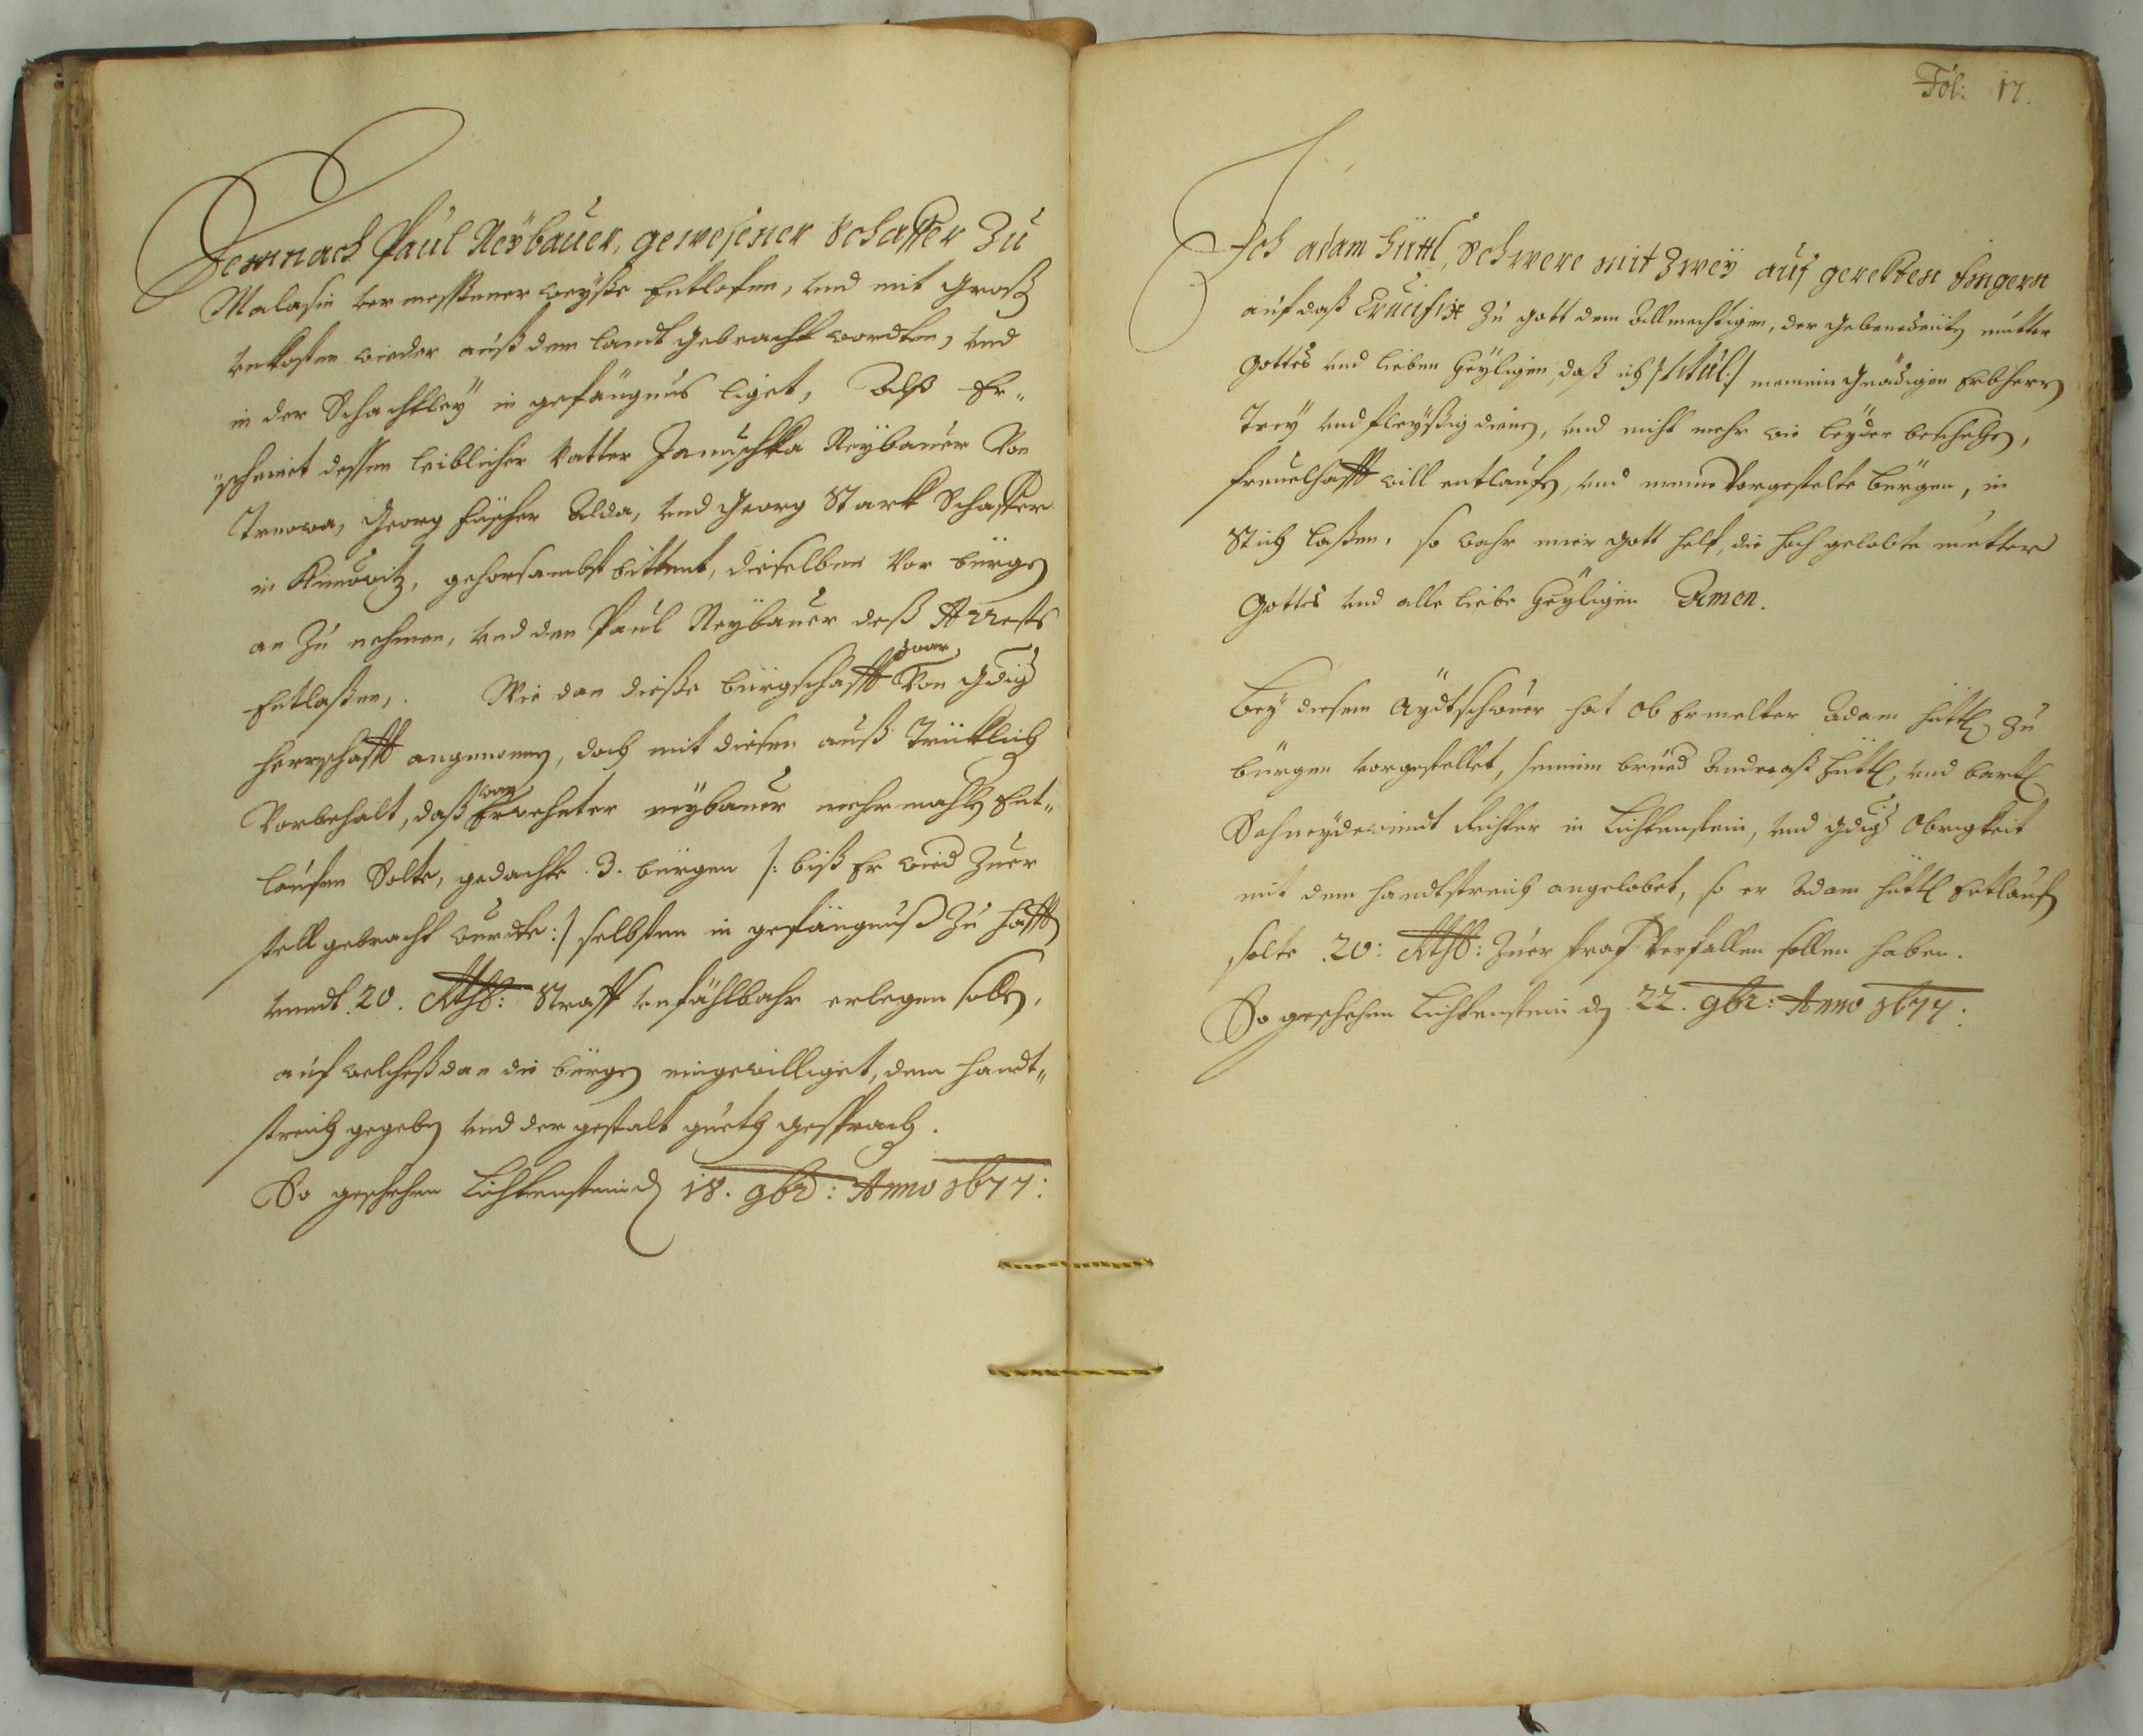 Demnach Paul Neÿbauer, gewesener Schaffer Zu
Malasin vermessener weyße Entlofen, und mit Groß
unkosten wieder auß dem landt gebracht wordten, und
in der Schachtley in gefängnus liget, Alß Er„
„scheinet dessen leiblicher Vatter Januschka Neÿbauer Von
Trnowa, Georg fischer Alda, und Georg Stark Schaffer
in, gehorsambst bittent, dieselben Vor bürgen
an Zu nehmen, und den Paul Neÿbauer deß Arrests
Entlaßen,. Wie dan dieße bürgschafft zwar Von gdig
herrschafft angenomen, doch mit diesen auß Trücklich
Vorbehalt, daß wan Erwehnter neÿbauer mehrmahlen Ent„
laufen Solte, gedachte .3. bürgen /: biß Er wied Zuer
stell gebracht wurdte :/ selbsten in gefängnuß Zu hafften
unndt .20. Rthl: Straff unfählbahr erlegen sollen,
auf welcheß dan die bürgen eingewilliget, dem handt„
streich gegeben und der gestalt gueth gesprachen.
So geschehen Lichtenstein den 18. 9br: Anno 1677:
Fol: 17.
Ich Adam hüttl, Schwere mit Zweÿ auf gerekten fingern
auf daß Crucifix Zu Gott dem Allmechtigen, der gebenedeÿten mutter
Gottes und lieben Heÿligen, daß ich /: titul :/ meinem Gnädigen Erbherrn
Treÿ und fleÿßig dienen, und nicht mehr wie leÿder beschehen,
frevelhafft will entlaufen, und meine Vorgestelte bürgen, in
Stich laßen. so wahr mier Gott helf, die hoch gelobte mutter
Gottes und alle liebe Heÿligen Amen.
Beÿ diesem Aÿdtschwuer hat ob Ermelter Adam hüttl Zu
bürgen vorgestellet, seinem brued Andreaß hüttl, und bartl
Schneÿdewindt Richter in Lichtenstein, und gdig Obrigkeit
mit dem handtstreich angelobet, so er Adam hüttl Entlaufen
solte .20: Rthl: Zuer straf Verfallen sollen haben.
So geschehen Lichtenstein den 22. 9br: Anno 1677: